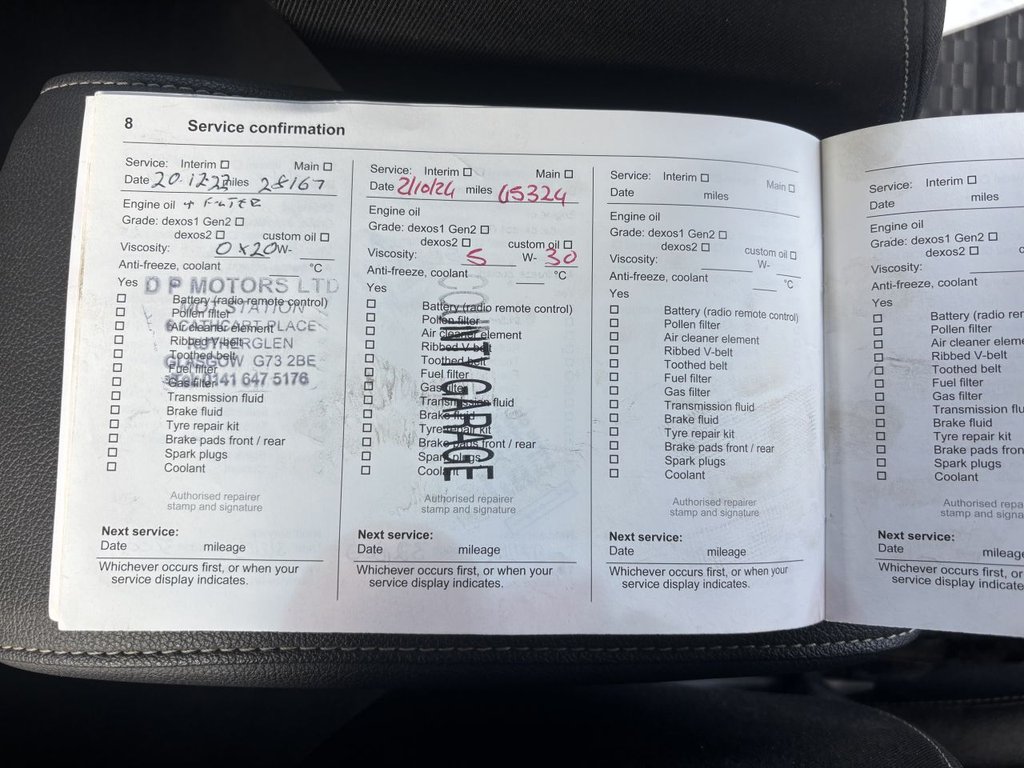 8 Service confirmation
Service: Interim ☐ Main ☐
Date 20.12.23 miles 28167
Engine oil + FILTER
Grade: dexos1 Gen2 ☐
dexos2 ☐ custom oil ☐
Viscosity: 0x20 W-
Anti-freeze, coolant °C
Yes
D P MOTORS LTD
☐ Battery (radio remote control)
MOT STATION
☐ Pollen filter
6 CATHCART PLACE
☐ Air cleaner element
RUTHERGLEN
☐ Ribbed V-belt
☐ Toothed belt
GLASGOW G73 2BE
☐ Fuel filter
Tel: 0141 647 5176
☐ Gas filter
☐ Transmission fluid
☐ Brake fluid
☐ Tyre repair kit
☐ Brake pads front / rear
☐ Spark plugs
☐ Coolant
Authorised repairer
stamp and signature
Next service:
Date mileage
Whichever occurs first, or when your
service display indicates.
Service: Interim ☐ Main ☐
Date 2/10/24 miles 65324
Engine oil
Grade: dexos1 Gen2 ☐
dexos2 ☐ custom oil ☐
Viscosity: 5 W- 30
Anti-freeze, coolant °C
Yes
☐ Battery (radio remote control)
☐ Pollen filter
☐ Air cleaner element
☐ Ribbed V-belt
☐ Toothed belt
☐ Fuel filter
☐ Gas filter
☐ Transmission fluid
☐ Brake fluid
☐ Tyre repair kit
☐ Brake pads front / rear
☐ Spark plugs
☐ Coolant
COUNTY GARAGE
Authorised repairer
stamp and signature
Next service:
Date mileage
Whichever occurs first, or when your
service display indicates.
Service: Interim ☐ Main ☐
Date miles
Engine oil
Grade: dexos1 Gen2 ☐
dexos2 ☐ custom oil ☐
Viscosity: W-
Anti-freeze, coolant °C
Yes
☐ Battery (radio remote control)
☐ Pollen filter
☐ Air cleaner element
☐ Ribbed V-belt
☐ Toothed belt
☐ Fuel filter
☐ Gas filter
☐ Transmission fluid
☐ Brake fluid
☐ Tyre repair kit
☐ Brake pads front / rear
☐ Spark plugs
☐ Coolant
Authorised repairer
stamp and signature
Next service:
Date mileage
Whichever occurs first, or when your
service display indicates.
Service: Interim ☐
Date miles
Engine oil
Grade: dexos1 Gen2 ☐
dexos2 ☐ custom
Viscosity:
Anti-freeze, coolant
Yes
☐ Battery (radio rem
☐ Pollen filter
☐ Air cleaner eleme
☐ Ribbed V-belt
☐ Toothed belt
☐ Fuel filter
☐ Gas filter
☐ Transmission flu
☐ Brake fluid
☐ Tyre repair kit
☐ Brake pads fron
☐ Spark plugs
☐ Coolant
Authorised rep
stamp and sign
Next service:
Date mileage
Whichever occurs first, or
service display indicates